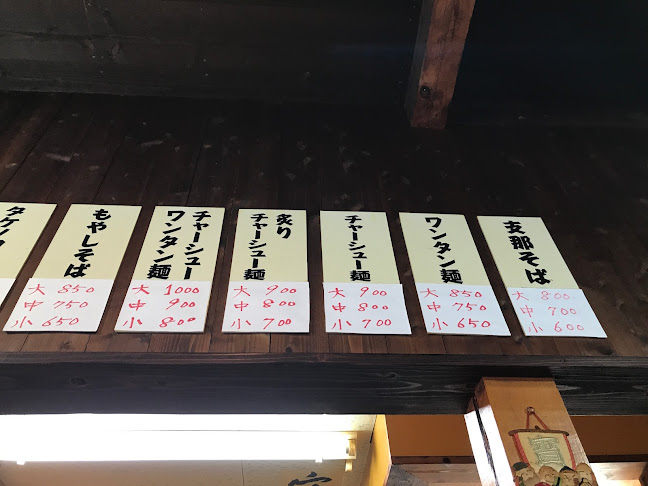 支那そば
大 800
中 700
小 600
ワンタン麺
大 850
中 750
小 650
チャーシュー麺
大 900
中 800
小 700
炙り
チャーシュー麺
大 900
中 800
小 700
チャーシュー
ワンタン麺
大 1000
中 900
小 800
もやしそば
大 850
中 750
小 650
タケノ